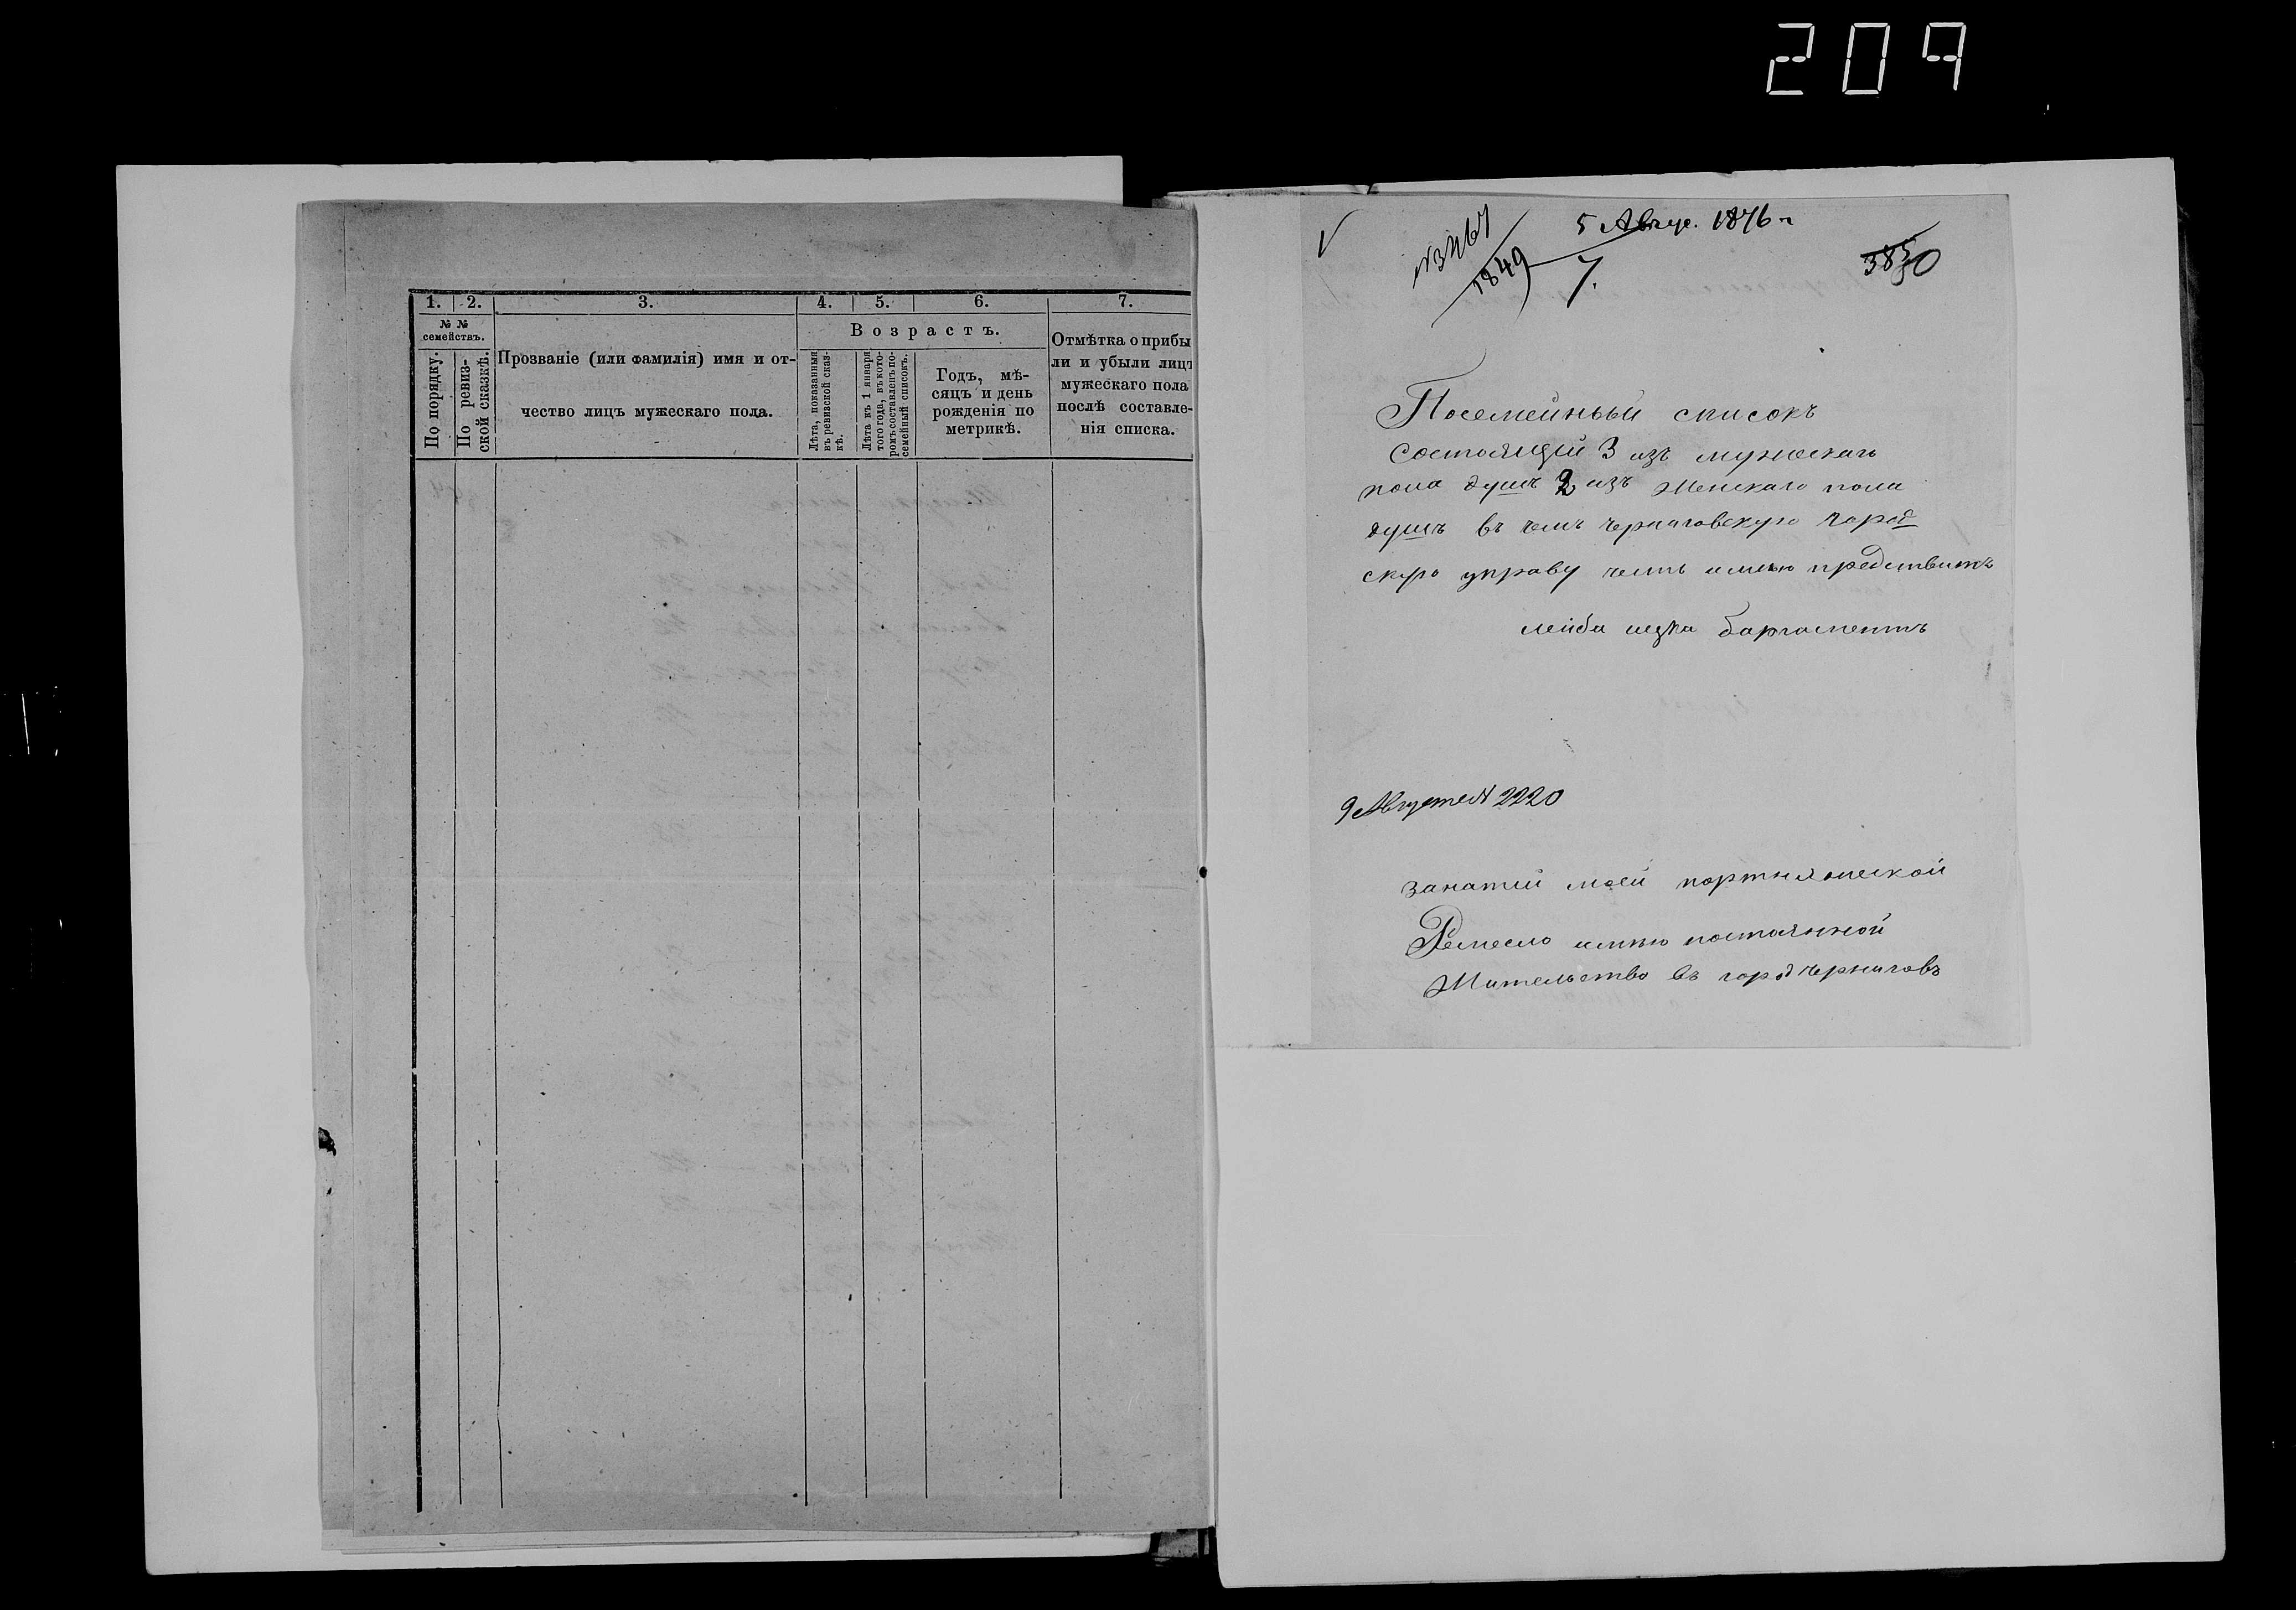 209
1. 2. 3. 4. 5. 6. 7.
№ № семействъ.
По порядку.
По ревиз-
ской сказкѣ.
Прозваніе (или фамилія) имя и от-
чество лицъ мужескаго пола.
Возрастъ.
Лѣта, показанныя
въ ревизской сказ-
кѣ.
Лѣта къ 1 января
того года, въ кото-
ромъ составленъ по-
семейный списокъ.
Годъ, мѣ-
сяцъ и день
рожденія по
метрикѣ.
Отмѣтка о прибы
ли и убыли лицъ
мужескаго пола
послѣ составле-
нія списка.
5 Авгус. 1876 г
1849
7.
3850
Посемейный списокъ
состоящій 3 изъ мужескаго
пола душъ 2 изъ Женскаго пола
душъ въ чемъ черниговскую город
скую управу честь имею предствить
лейба ицка баргаментъ
9 Августа № 2220
занатий моей портняческой
Ремесло имею постоянной
Жительство въ город черниговъ